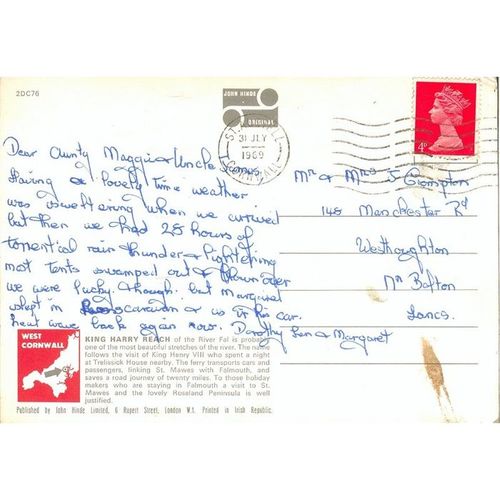 2DC76
JOHN HINDE
ORIGINAL
ST
31 JLY
1969
CORNWALL
4ᴰ
Dear Aunty Maggie & Uncle James
Having a lovely time weather
was sweltering when we arrived
but then we had 28 hours of
torrential rain thunder & lightening
most tents swamped out & blown over
we were lucky though. but Margaret
slept in caravan & us in his car.
heat wave back again now. Dorothy Len & Margaret
Mr & Mrs J Crompton
148 Manchester Rd
Westhoughton
Nr Bolton
Lancs.
WEST
CORNWALL
KING HARRY REACH of the River Fal is probably
one of the most beautiful stretches of the river. The name
follows the visit of King Henry VIII who spent a night
at Trelissick House nearby. The ferry transports cars and
passengers, linking St. Mawes with Falmouth, and
saves a road journey of twenty miles. To those holiday
makers who are staying in Falmouth a visit to
St. Mawes and the lovely Roseland Peninsula is well
justified.
Published by John Hinde Limited, 6 Rupert Street, London W.1. Printed in Irish Republic.